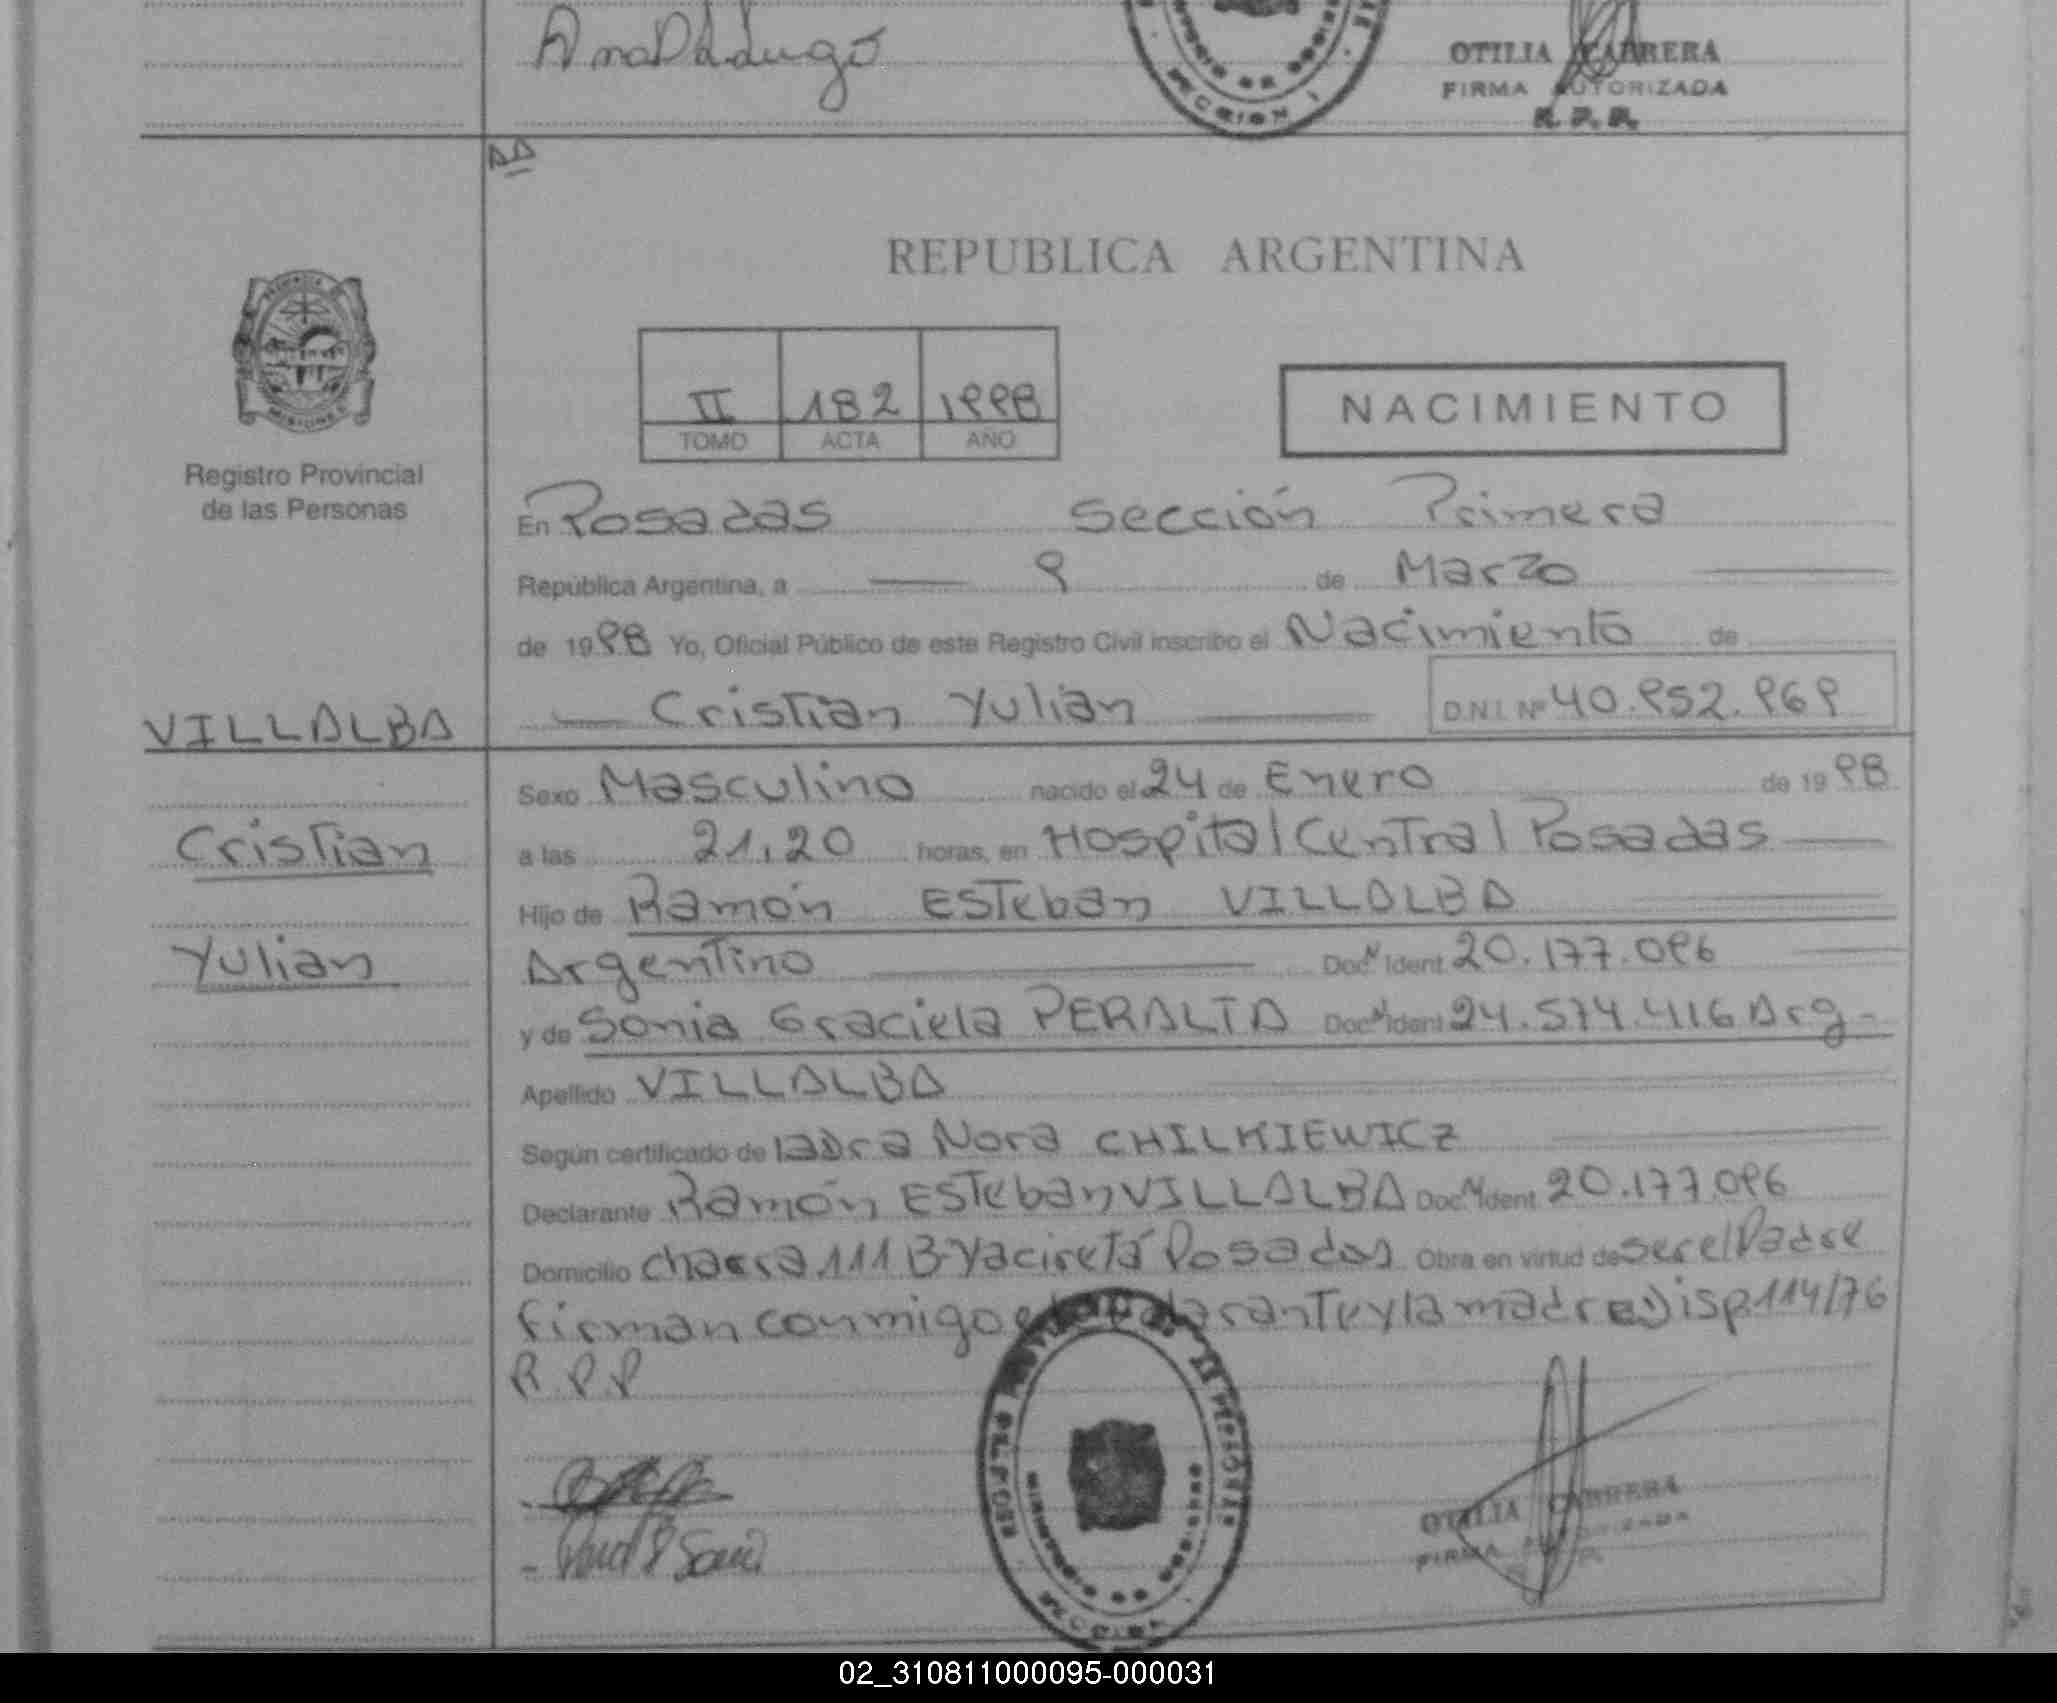 Ana D Lugo
SECCION I
OTILIA CABRERA
FIRMA AUTORIZADA
R. P. P.
REPUBLICA ARGENTINA
II 182 1998
TOMO ACTA AÑO
NACIMIENTO
MISIONES
Registro Provincial
de las Personas
En Posadas Sección Primera
República Argentina, a 9 de Marzo
de 1998 Yo, Oficial Público de este Registro Civil inscribo el Nacimiento de
VILLALBA
Cristian Yulian D.N.I. Nº 40.952.969
Sexo Masculino nacido el 24 de Enero de 1998
Cristian
a las 21,20 horas, en Hospital Central Posadas
Hijo de Ramón Esteban VILLALBA
Yulian
Argentino Doc. Ident 20.177.096
y de Sonia Graciela PERALTA Doc. Ident 24.574.416 Arg-
Apellido VILLALBA
Según certificado de la Dra Nora CHILKIEWICZ
Declarante Ramón Esteban VILLALBA Doc. Ident 20.177.096
Domicilio chacra 111 B-Yaciretá Posadas Obra en virtud de ser el Padre
Firman conmigo el declarante y la madre Disp. 114/76
R.P.P
OTILIA CABRERA
FIRMA AUTORIZADA
02_310811000095-000031